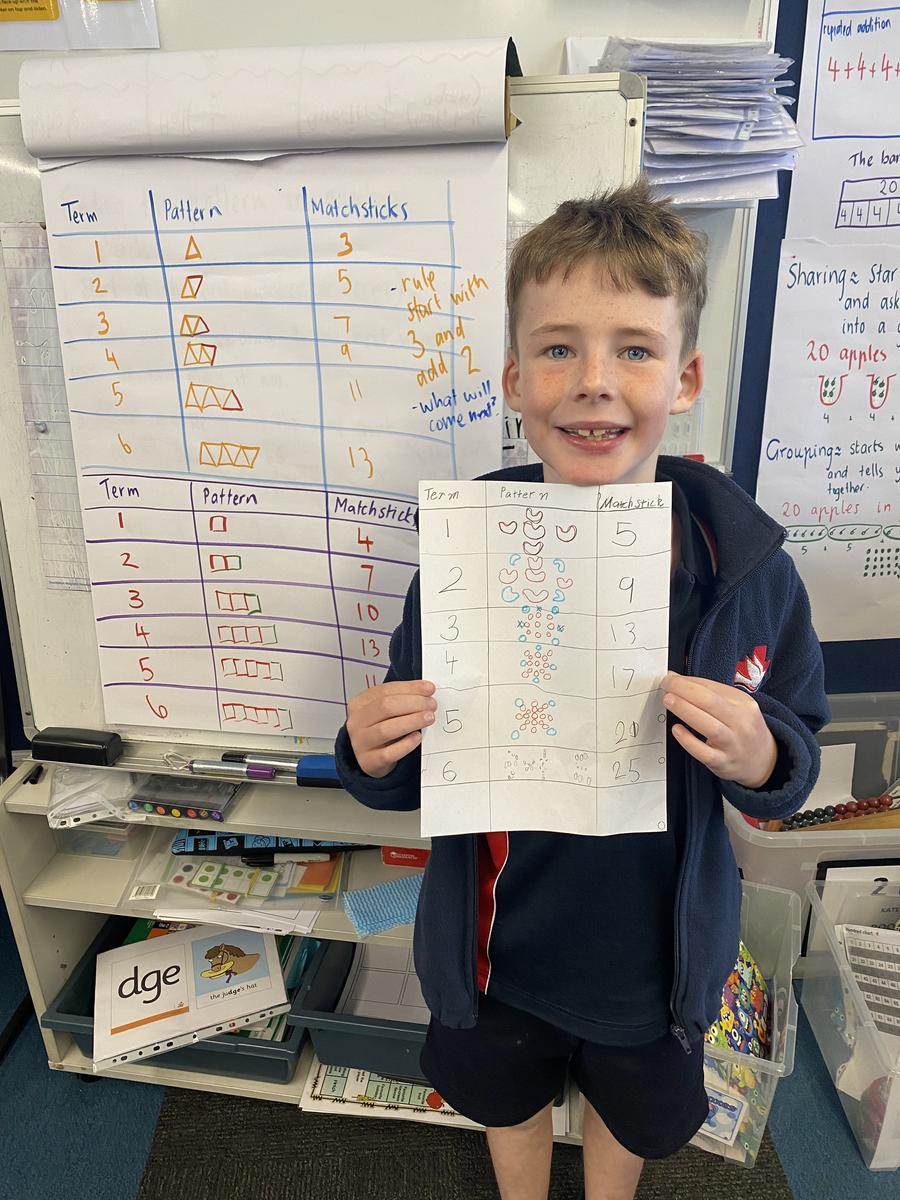 Term Pattern Matchsticks
1 3
2 5
3 7
4 9
5 11
6 13
- rule
start with
3 and
add 2
- what will
come next?
Term Pattern Matchstick
1 4
2 7
3 10
4 13
5
6
Term Pattern Matchstick
1 5
2 9
3 13
4 17
5 21
6 25
repeated addition
4+4+4+
The bar
20
4 4 4
Sharing ≈ Star
and ask
into a
20 apples
4 + 4 +
Grouping ≈ starts w
and tells y
together.
20 apples in
5 + 5
dge
the judge's hat
Hundred chart